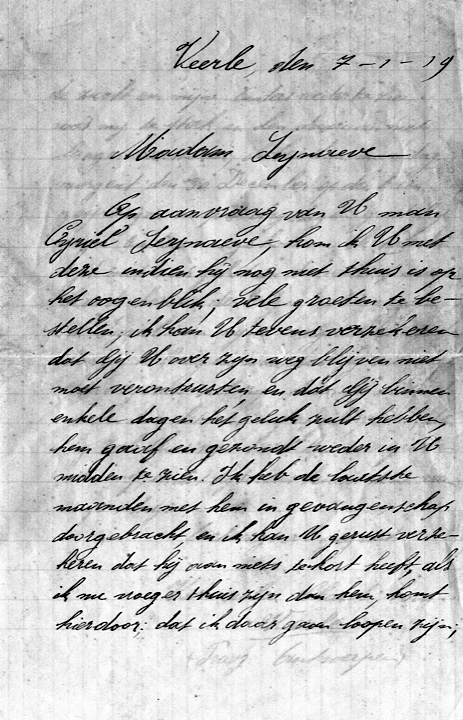 Veerle, den 7-1-19
Madam Seynaeve
Op aanvraag van U man
Cyriel Seynaeve, kom ik U met
deze indien hij nog niet thuis is op
het oogenblik; vele groeten te be-
stellen, ik kan U tevens verzekeren
dat Gij U over zijn weg blijven niet
moet verontrusten en dat Gij binnen
enkele dagen het geluk zult hebben,
hem gaaf en gezondt weder in U
midden te zien. Ik heb de laatste
maanden met hem in gevangenschap
doorgebracht en ik kan U gerust verze-
keren dat hij aan niets tekort heeft, als
ik nu vroeger thuis zijn dan hem, komt
hierdoor; dat ik daar gaan loopen zijn;